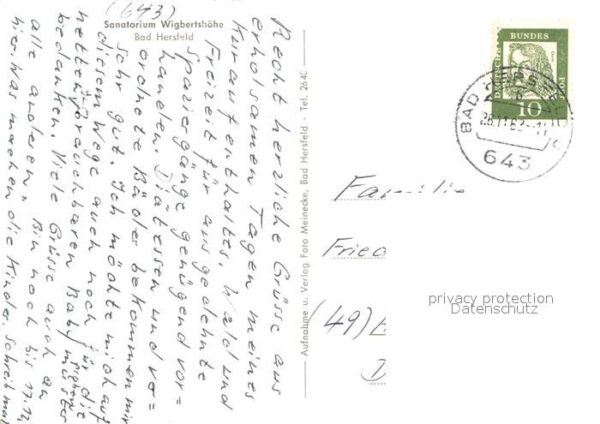 (643)
Sanatorium Wigbertshöhe
Bad Hersfeld
Recht herzliche Grüsse aus
erholsamen Tagen meines
Kuraufenthaltes. Wald und
Freizeit für ausgedehnte
Spaziergänge genügend vor=
handen. Diätessen und ver=
ordnete Bäder bekommen mir
sehr gut. Ich möchte mich auf
diesem Wege auch noch für die
netten brauchbaren Baby
bedanken. Viele Grüsse auch an
alle anderen. Bin noch bis 17.12.
hier. Was machen die Kinder. Schreib mal
Aufnahme u. Verlag Foto Meinecke, Bad Hersfeld - Tel. 2640
DEUTSCHE BUNDESPOST
10
BAD HERSFELD
643
Familie
Fried
(49)
privacy protection
Datenschutz